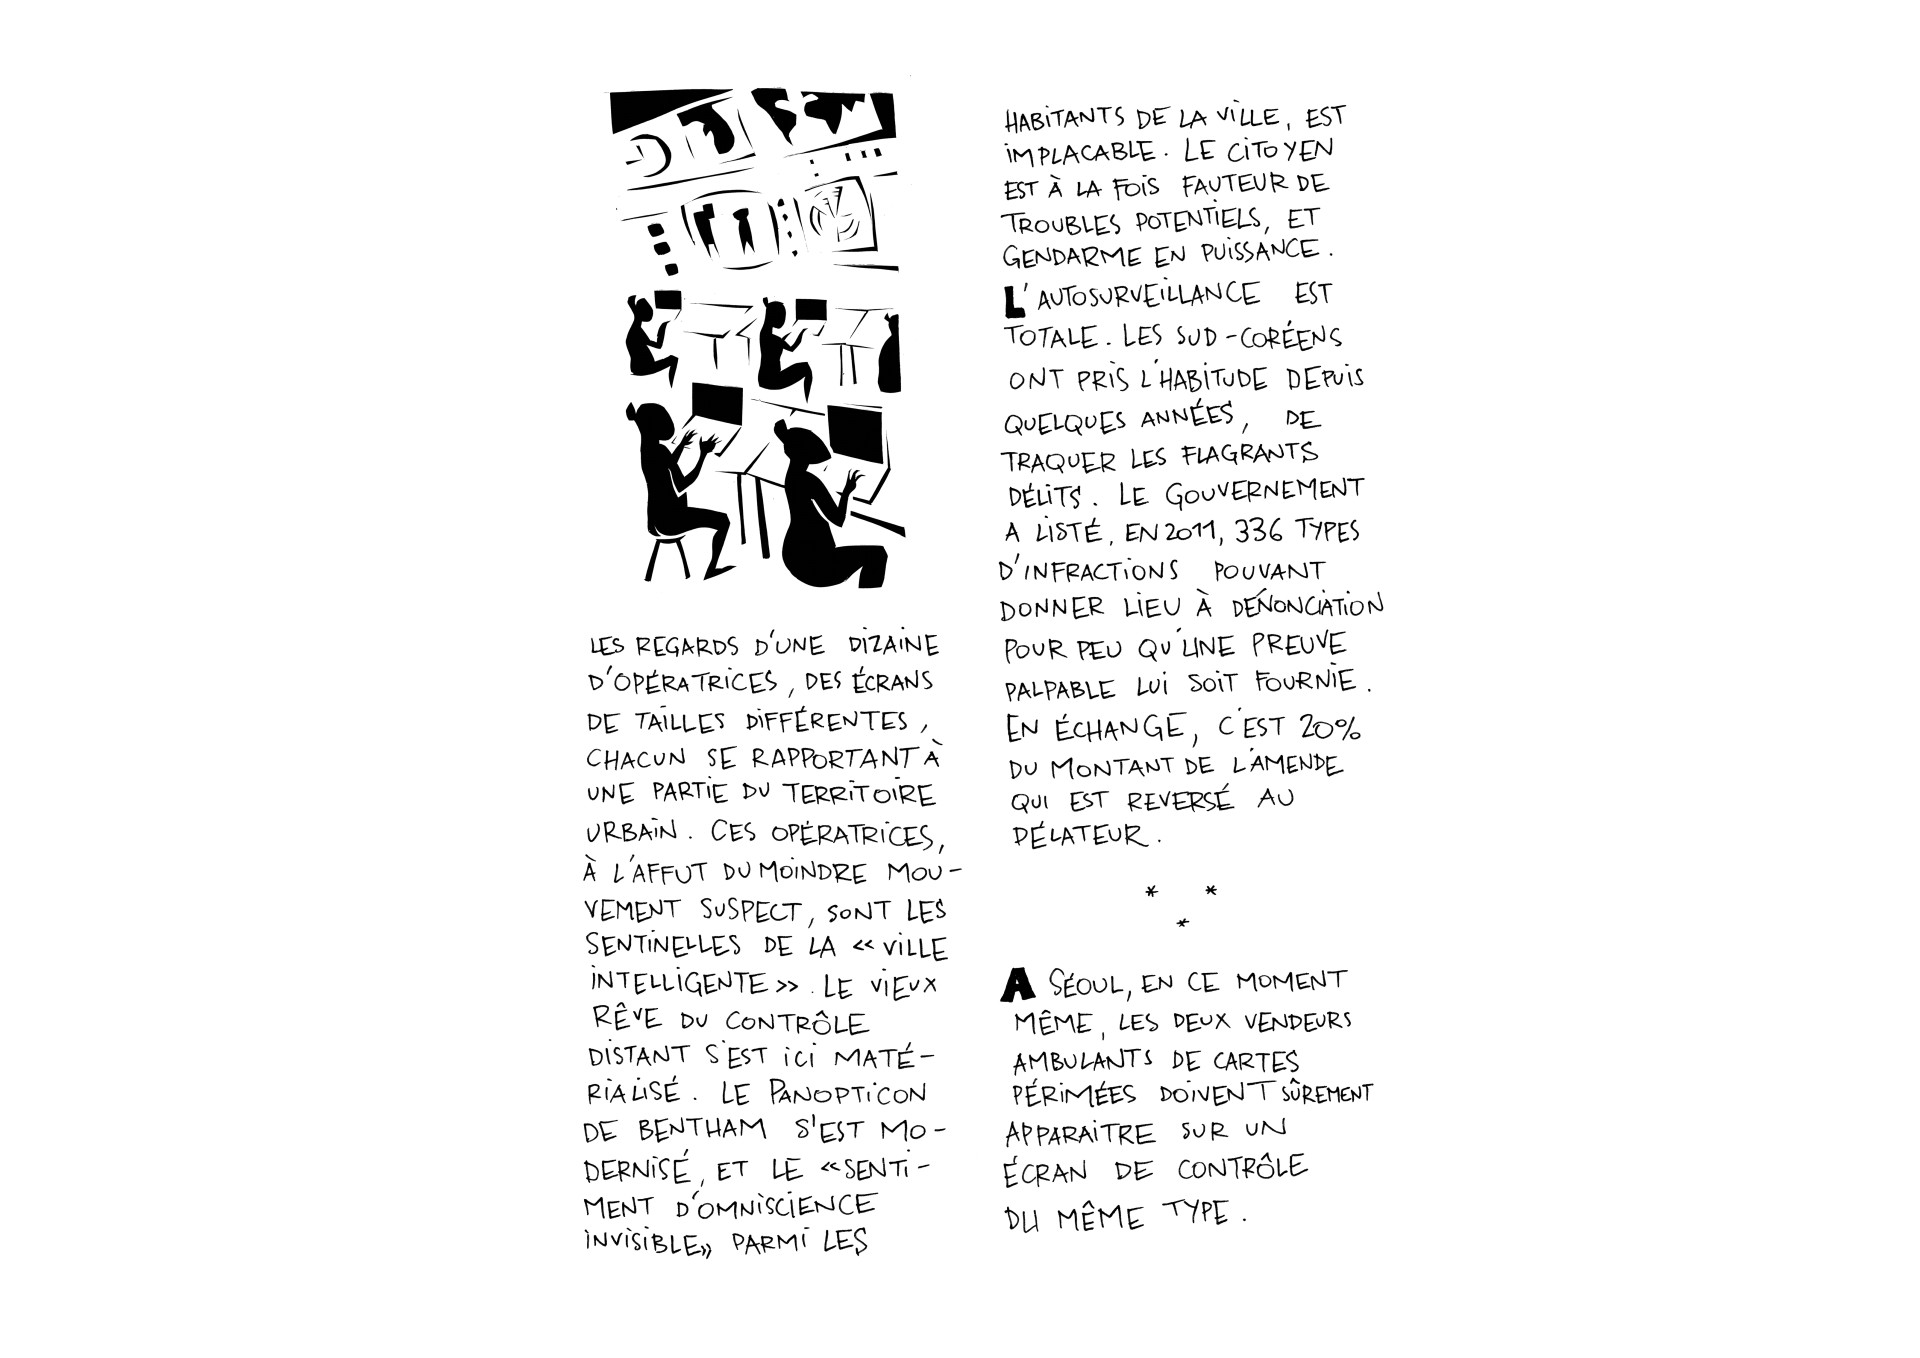 LES REGARDS D'UNE DIZAINE
D'OPÉRATRICES, DES ÉCRANS
DE TAILLES DIFFÉRENTES,
CHACUN SE RAPPORTANT À
UNE PARTIE DU TERRITOIRE
URBAIN. CES OPÉRATRICES,
À L'AFFUT DU MOINDRE MOU-
VEMENT SUSPECT, SONT LES
SENTINELLES DE LA « VILLE
INTELLIGENTE ». LE VIEUX
RÊVE DU CONTRÔLE
DISTANT S'EST ICI MATÉ-
RIALISÉ. LE PANOPTICON
DE BENTHAM S'EST MO-
DERNISÉ, ET LE « SENTI-
MENT D'OMNISCIENCE
INVISIBLE» PARMI LES
HABITANTS DE LA VILLE, EST
IMPLACABLE. LE CITOYEN
EST À LA FOIS FAUTEUR DE
TROUBLES POTENTIELS, ET
GENDARME EN PUISSANCE.
L'AUTOSURVEILLANCE EST
TOTALE. LES SUD-CORÉENS
ONT PRIS L'HABITUDE DEPUIS
QUELQUES ANNÉES, DE
TRAQUER LES FLAGRANTS
DÉLITS. LE GOUVERNEMENT
A LISTÉ, EN 2011, 336 TYPES
D'INFRACTIONS POUVANT
DONNER LIEU À DÉNONCIATION
POUR PEU QU'UNE PREUVE
PALPABLE LUI SOIT FOURNIE.
EN ÉCHANGE, C'EST 20%
DU MONTANT DE L'AMENDE
QUI EST REVERSÉ AU
DÉLATEUR.
* *
*
A SÉOUL, EN CE MOMENT
MÊME, LES DEUX VENDEURS
AMBULANTS DE CARTES
PÉRIMÉES DOIVENT SÛREMENT
APPARAITRE SUR UN
ÉCRAN DE CONTRÔLE
DU MÊME TYPE.